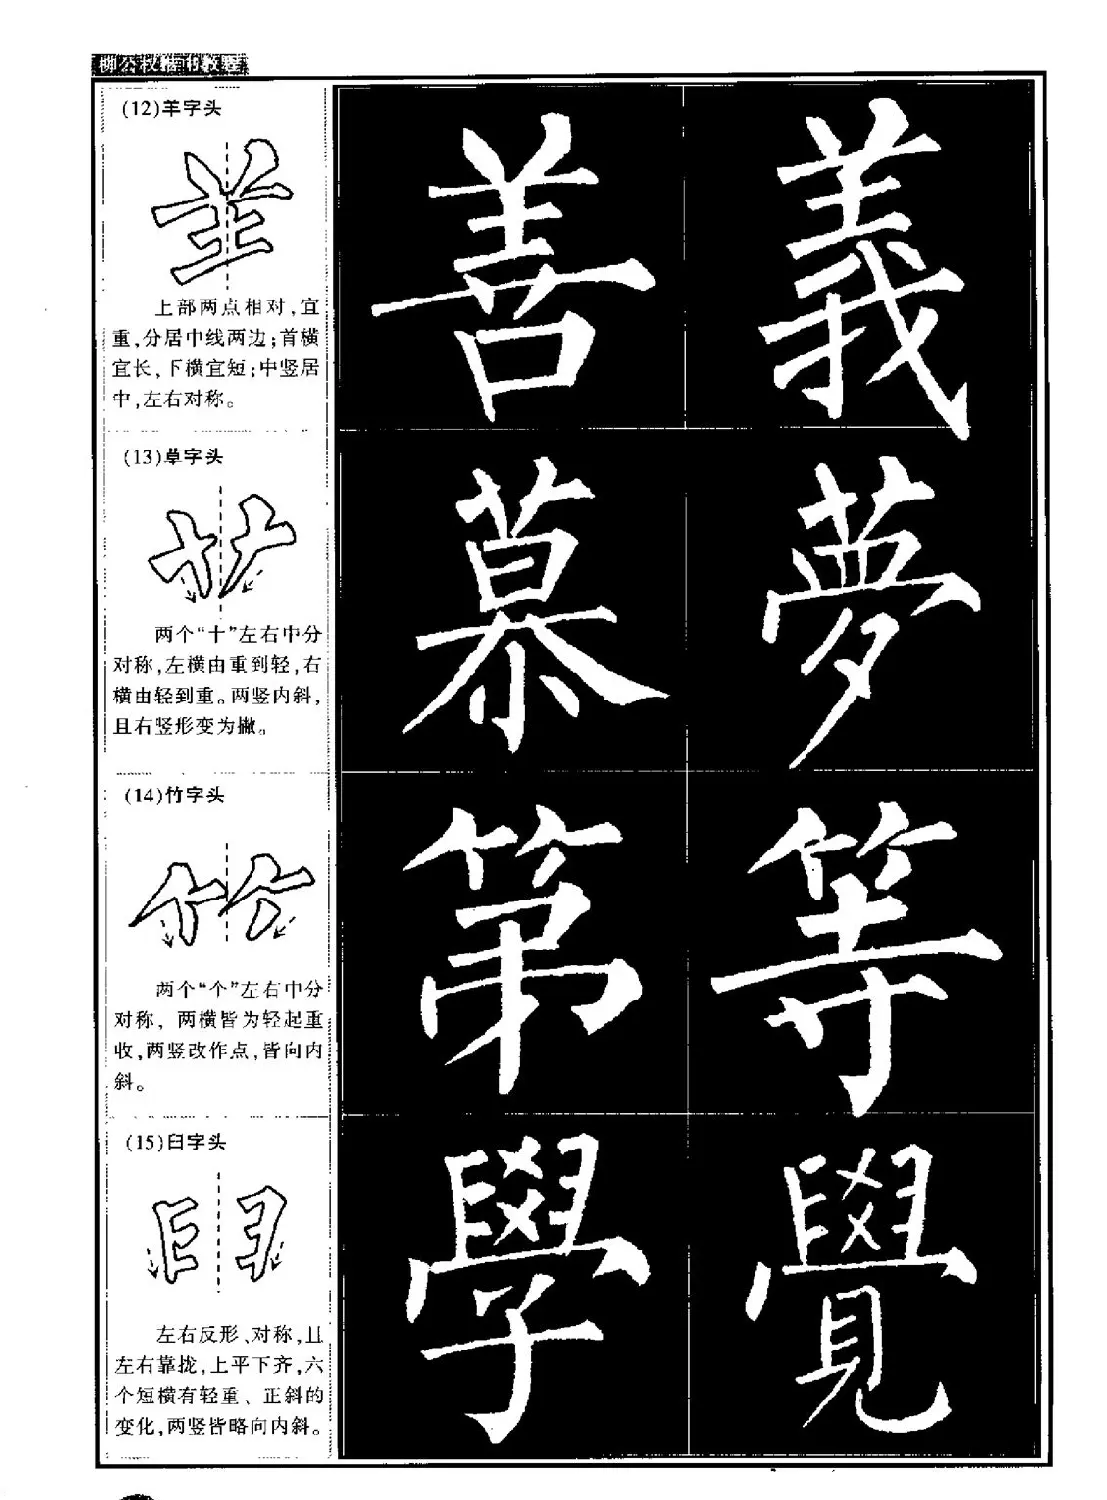 柳公权楷书教程
(12)羊字头
上部两点相对,宜
重,分居中线两边;首横
宜长,下横宜短;中竖居
中,左右对称。
善 義
(13)草字头
两个“十”左右中分
对称,左横由重到轻,右
横由轻到重。两竖内斜,
且右竖形变为撇。
慕 夢
(14)竹字头
两个“个”左右中分
对称,两横皆为轻起重
收,两竖改作点,皆向内
斜。
第 等
(15)臼字头
左右反形、对称,且
左右靠拢,上平下齐,六
个短横有轻重、正斜的
变化,两竖皆略向内斜。
學 覺